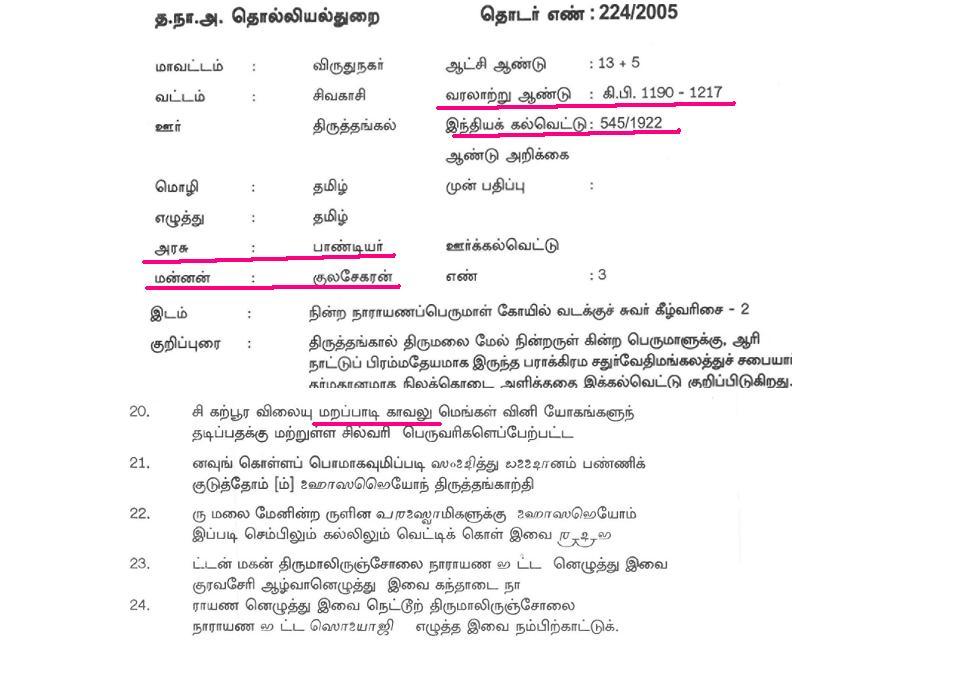 த.நா.அ. தொல்லியல்துறை தொடர் எண் : 224/2005
மாவட்டம் : விருதுநகர் ஆட்சி ஆண்டு : 13 + 5
வட்டம் : சிவகாசி வரலாற்று ஆண்டு : கி.பி. 1190 - 1217
ஊர் திருத்தங்கல் இந்தியக் கல்வெட்டு : 545/1922
ஆண்டு அறிக்கை
மொழி : தமிழ் முன் பதிப்பு :
எழுத்து : தமிழ்
அரசு : பாண்டியர் ஊர்க்கல்வெட்டு
மன்னன் : குலசேகரன் எண் : 3
இடம் : நின்ற நாராயணப்பெருமாள் கோயில் வடக்குச் சுவர் கீழ்வரிசை - 2
குறிப்புரை : திருத்தங்கால் திருமலை மேல் நின்றருள் கின்ற பெருமாளுக்கு, ஆரி
நாட்டுப் பிரம்மதேயமாக இருந்த பராக்கிரம சதுர்வேதிமங்கலத்துச் சபையார்
தர்மதானமாக நிலக்கொடை அளித்ததை இக்கல்வெட்டு குறிப்பிடுகிறது.
20. சி கற்பூர விலையு மறப்பாடி காவலு மெங்கள் வினி யோகங்களுந்
தடிப்பதக்கு மற்றுள்ள சில்வரி பெருவரிகளெப்பேற்பட்ட
21. னவுங் கொள்ளப் பொமாகவுமிப்படி பண்ணிக்
குடுத்தோம் [ம்] திருத்தங்காற்தி
22. ரு மலை மேனின்ற ருளின
இப்படி செம்பிலும் கல்லிலும் வெட்டிக் கொள் இவை
23. ட்டன் மகன் திருமாலிருஞ்சோலை நாராயண ட்ட னெழுத்து இவை
குரவசேரி ஆழ்வானெழுத்து இவை கந்தாடை நா
24. ராயண னெழுத்து இவை நெட்டூற் திருமாலிருஞ்சோலை
நாராயண ட்ட எழுத்த இவை நம்பிற்காட்டுக்.